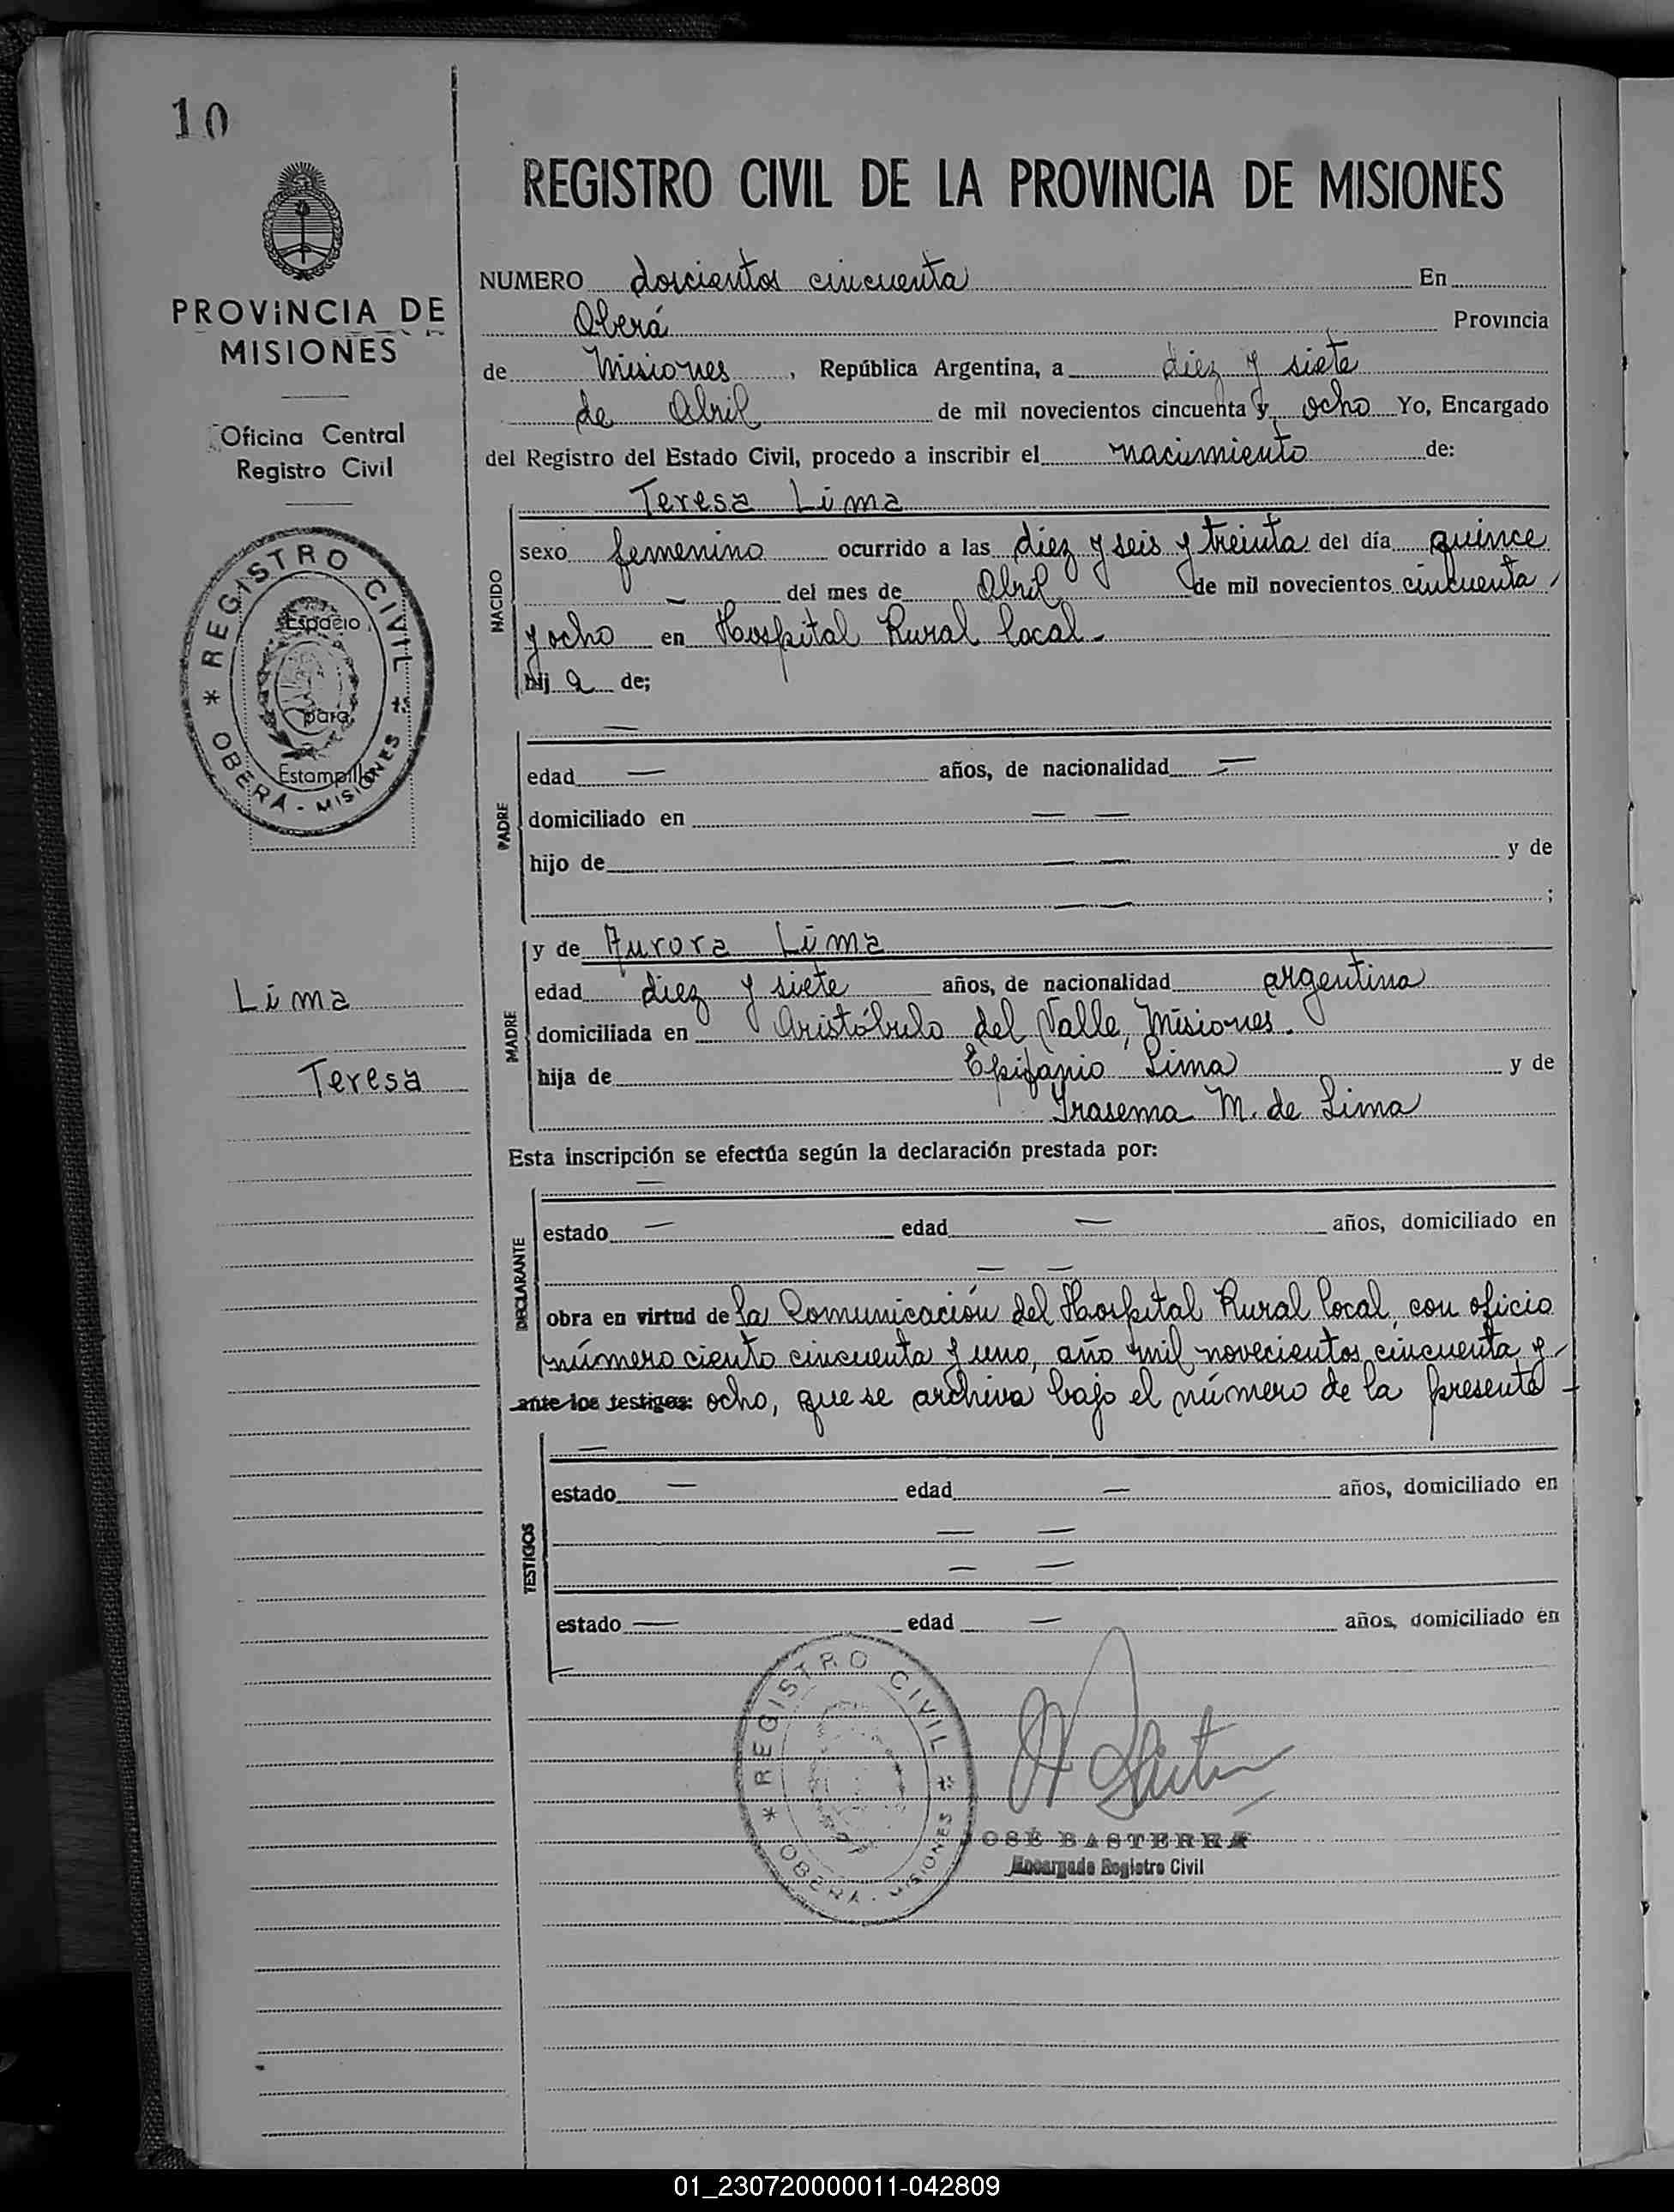 10
PROVINCIA DE
MISIONES
Oficina Central
Registro Civil
* REGISTRO CIVIL *
OBERÁ - MISIONES
Espacio
para
Estampilla
Lima
Teresa
REGISTRO CIVIL DE LA PROVINCIA DE MISIONES
NUMERO doscientos cincuenta En
Oberá Provincia
de Misiones, República Argentina, a diez y siete
de Abril de mil novecientos cincuenta y ocho Yo, Encargado
del Registro del Estado Civil, procedo a inscribir el nacimiento de:
Teresa Lima
NACIDO
sexo femenino ocurrido a las diez y seis y treinta del día quince
— del mes de Abril de mil novecientos cincuenta
y ocho en Hospital Rural local.-
hij a de;
PADRE
—
edad — años, de nacionalidad —
domiciliado en — —
hijo de — — y de
— — ;
MADRE
y de Aurora Lima
edad diez y siete años, de nacionalidad argentina
domiciliada en Aristóbulo del Valle, Misiones.
hija de Epifanio Lima y de
Irasema M. de Lima
Esta inscripción se efectúa según la declaración prestada por:
DECLARANTE
—
estado — edad — años, domiciliado en
— —
obra en virtud de la Comunicación del Hospital Rural local, con oficio
número ciento cincuenta y uno, año mil novecientos cincuenta y
ante los testigos: ocho, que se archiva bajo el número de la presente -
TESTIGOS
—
estado — edad — años, domiciliado en
— —
— —
estado — edad — años, domiciliado en
* REGISTRO CIVIL *
OBERÁ - MISIONES
JOSÉ BASTERRA
Encargado Registro Civil
01_230720000011-042809